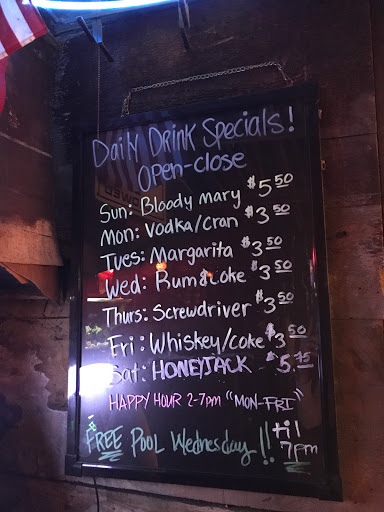 Daily Drink Specials!
Open-close
Sun: Bloody Mary $5.50
Mon: Vodka/Cran $3.50
Tues: Margarita $3.50
Wed: Rum&Coke $3.50
Thurs: Screwdriver $3.50
Fri: Whiskey/coke $3.50
Sat: HONEYJACK $5.75
HAPPY HOUR 2-7pm "MON-FRI"
FREE Pool Wednesday!! til 7pm